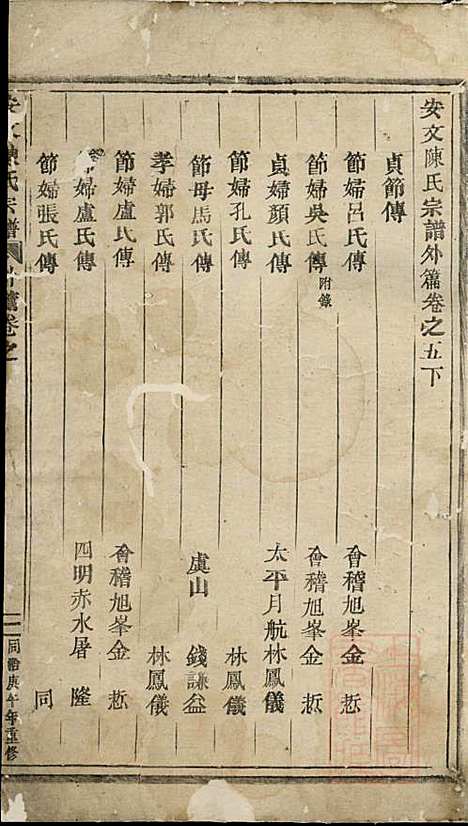 安文陳氏宗譜外篇卷之五下
貞節傳
節婦呂氏傳 會稽旭峯金
節婦吳氏傳 附錄 會稽旭峯金
貞婦顏氏傳 太平月航林鳳儀
節婦孔氏傳 林鳳儀
節母馬氏傳 虞山 錢謙益
孝婦郭氏傳 林鳳儀
節婦盧氏傳 會稽旭峯金
婦盧氏傳 四明赤水屠 隆
節婦張氏傳 同
安文陳氏宗譜 外篇卷之
同治庚午年重修